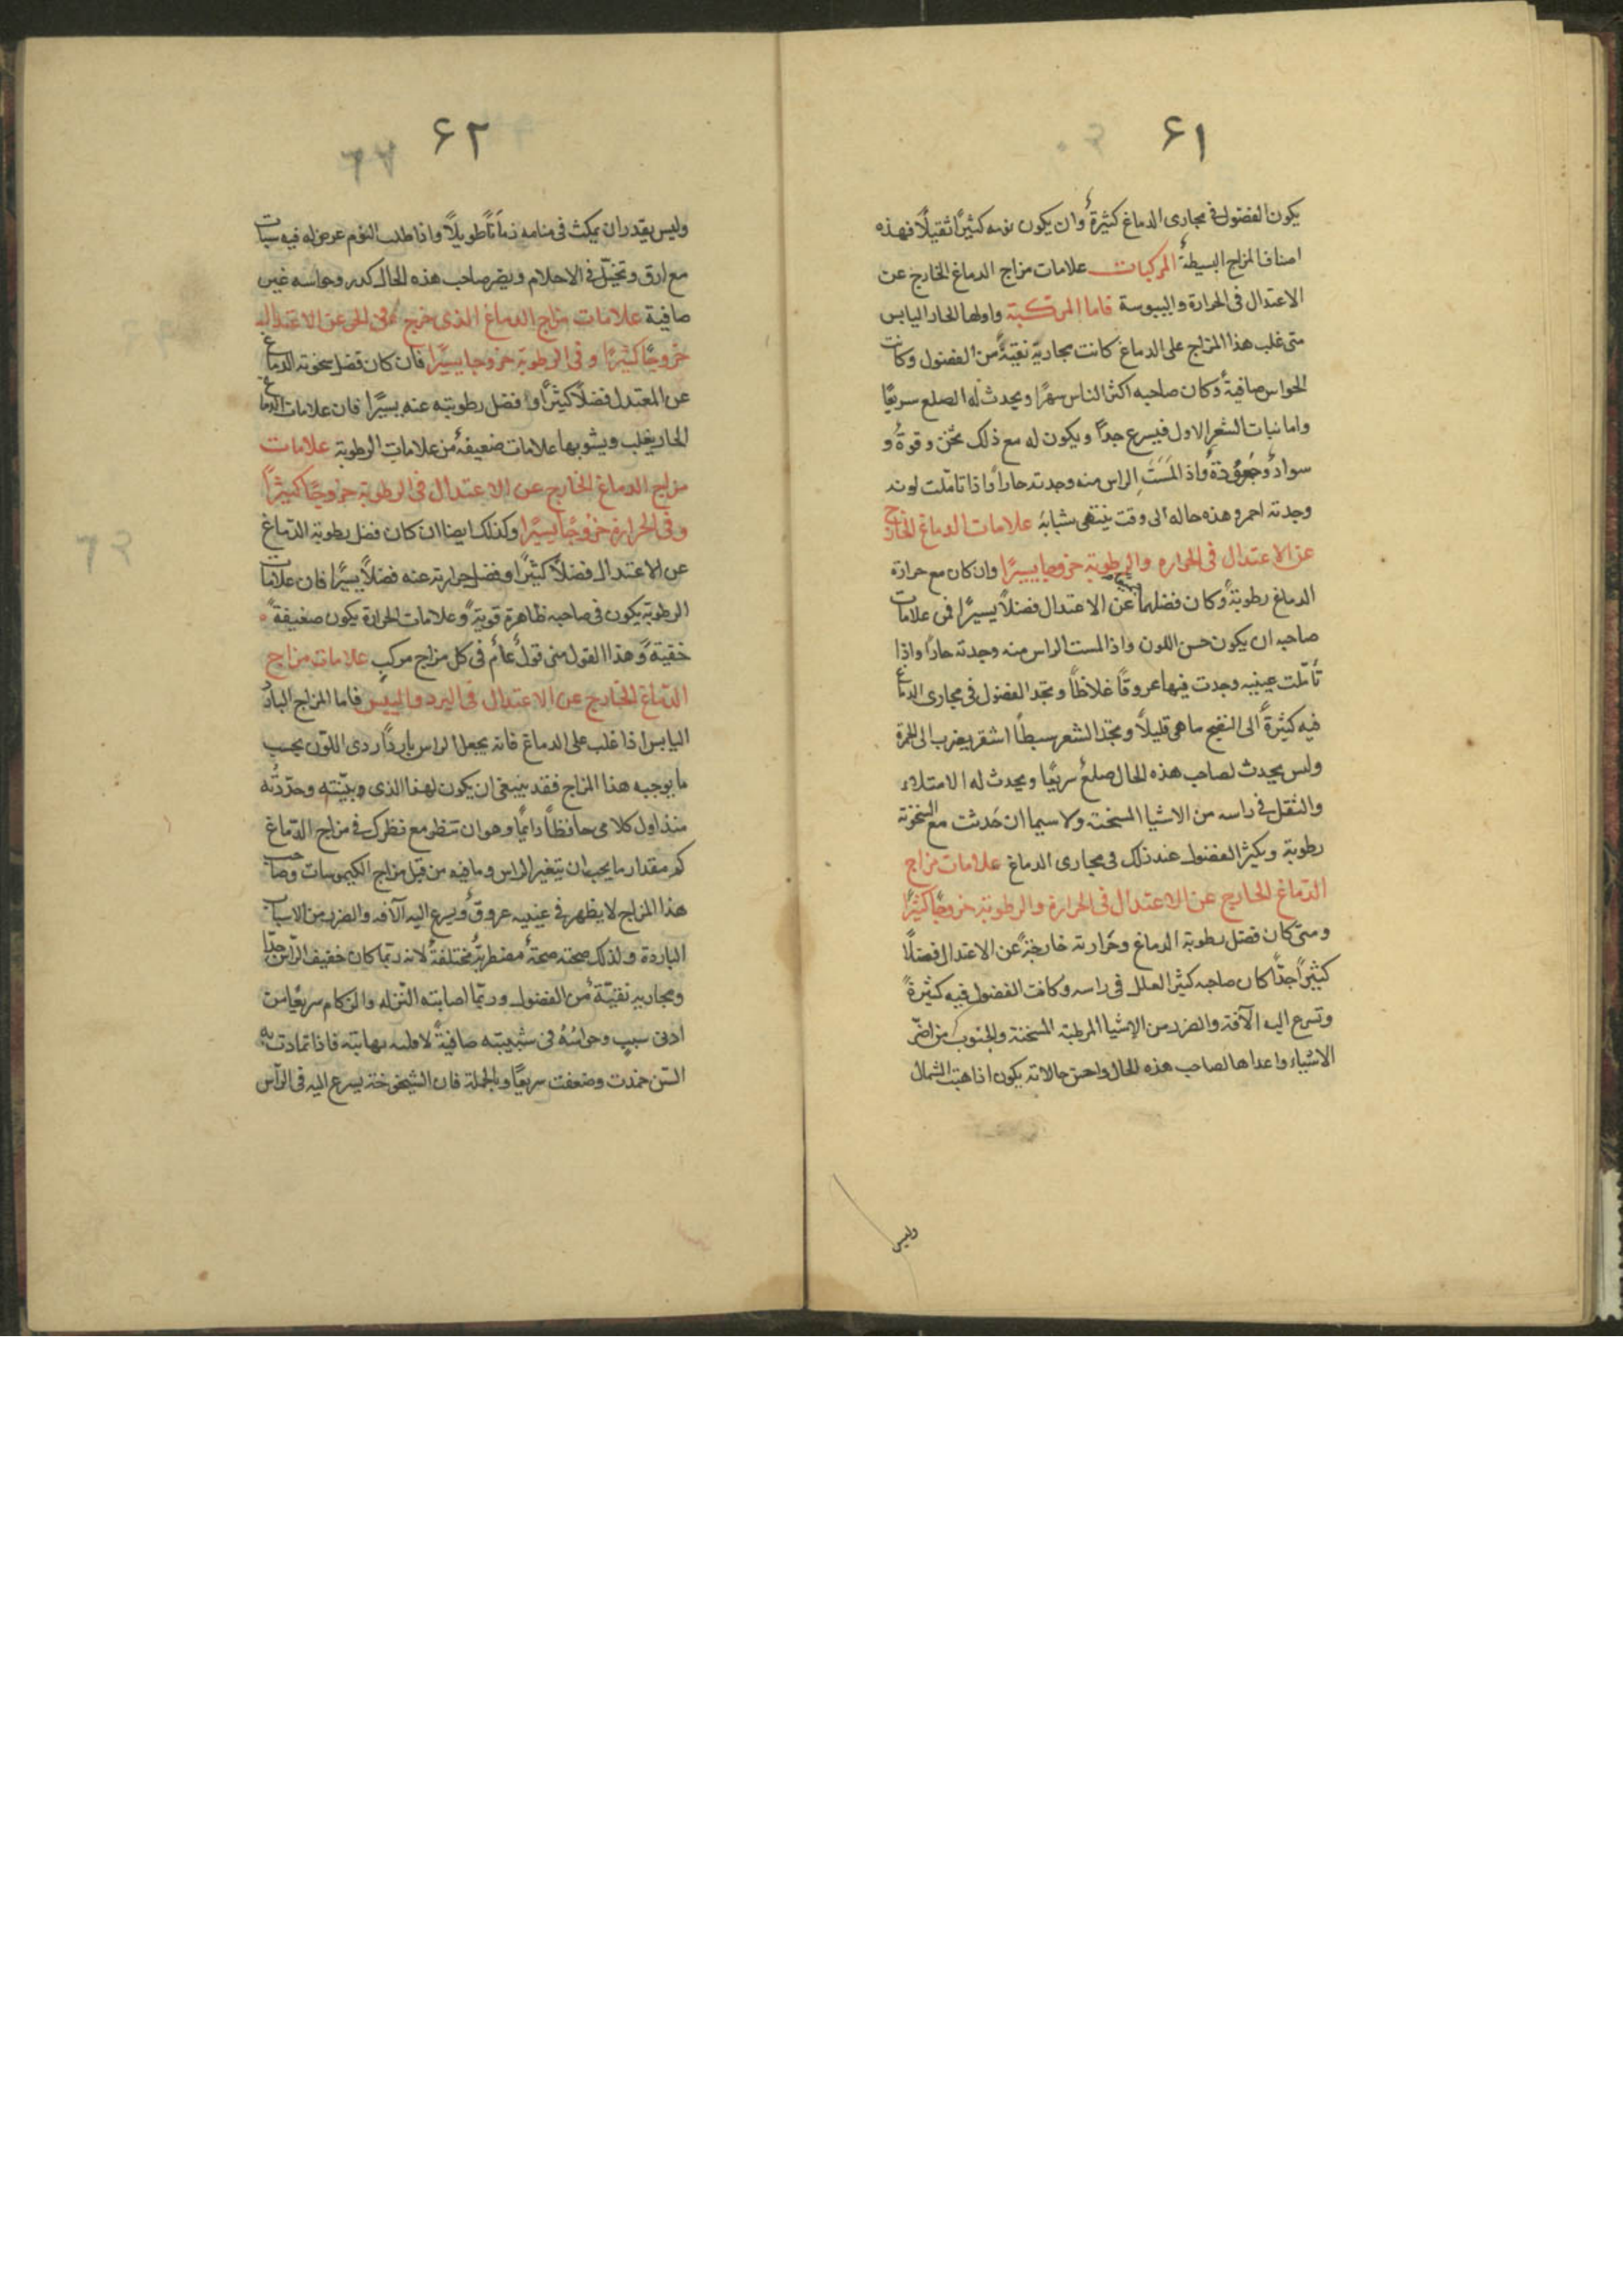 ٦١
يكون الفضول فى مجارى الدماغ كثيرة وان يكون نومه كثيرًا ثقيلًا فهذه
اصناف المزاج البسيطة المركبات علامات مزاج الدماغ الخارج عن
الاعتدال فى الحرارة واليبوسة فاما المركبة واولها الحار اليابس
متى غلب هذا المزاج على الدماغ كانت مجاريه نقية من الفضول وكانت
الحواس صافية وكان صاحبه اكثر الناس سهرًا ويحدث له الصلع سريعًا
واما نبات الشعر الاول فيسرع جدًا ويكون له مع ذلك ثخن وقوة و
سواد وجعودة واذا لمست الراس منه وجدته حارًا واذا تاملت لونه
وجدته احمر وهذه حاله الى وقت ينتهى شبابه علامات الدماغ الخارج
عن الاعتدال فى الحراره والرطوبة خروجا يسيرًا وان كان مع حرارة
الدماغ رطوبة وكان فضلهما عن الاعتدال فضلًا يسيرًا فمن علامات
صاحبه ان يكون حسن اللون واذا لمست الراس منه وجدته حارًا واذا
تأملت عينيه وجدت فيها عروقًا غلاظًا وتجد الفضول فى مجارى الدماغ
فيه كثيرةً الى النضج ما هى قليلًا وتجد الشعر سبطًا اشقر يضرب الى الحمرة
وليس يحدث لصاحب هذه الحال صلع سريعًا ويحدث له الامتلاء
والثقل فى راسه من الاشيا المسخنة ولا سيما ان حدثت مع السخونة
رطوبة ويكثر الفضول عند ذلك فى مجارى الدماغ علامات مزاج
الدماغ الخارج عن الاعتدال فى الحرارة والرطوبة خروجًا كثيرًا
ومتى كان فضل رطوبة الدماغ وحرارته خارجة عن الاعتدال فضلًا
كثيرًا جدًا كان صاحبه كثير العلل فى راسه وكانت الفضول فيه كثيرةً
وتسرع اليه الآفة والضرر من الاشيا المرطبة المسخنة والجنوب من اضر
الاشياء واعداها لصاحب هذه الحال واحسن حالاته يكون اذا هبت الشمال
وليس
٦٢
وليس يقدر ان يمكث فى منامه زمانًا طويلًا واذا طلب النوم عرض له فيه سبات
مع ارق وتخيل فى الاحلام وبصر صاحب هذه الحال كدر وحواسه غير
صافية علامات مزاج الدماغ الذى خرج فى الحر عن الاعتدال
خروجًا كثيرًا وفى الرطوبة خروجا يسيرًا فان كان فضل سخونة الدماغ
عن المعتدل فضلًا كثيرًا وفضل رطوبته عنه يسيرًا فان علامات الدماغ
الحار يغلب ويشوبها علامات ضعيفة من علامات الرطوبة علامات
مزاج الدماغ الخارج عن الاعتدال فى الرطوبة خروجًا كثيرًا
وفى الحرارة خروجًا يسيرًا وكذلك ايضا ان كان فضل رطوبة الدماغ
عن الاعتدال فضلًا كثيرًا وفضل حرارته عنه فضلًا يسيرًا فان علامات
الرطوبة يكون فى صاحبه ظاهرة قوية وعلامات الحرارة يكون ضعيفة
خفيةً وهذا القول منى قول عام فى كل مزاج مركب علامات مزاج
الدماغ الخارج عن الاعتدال فى البرد واليبس فاما المزاج البارد
اليابس اذا غلب على الدماغ فانه يجعل الراس باردًا ردى اللون بحسب
ما يوجبه هذا المزاج فقد ينبغى ان يكون لهذا الذى وبينته وحددته
منذ اول كلامى حافظًا دايمًا وهو ان تنظر مع نظرك فى مزاج الدماغ
كم مقدار ما يجب ان يتغير الراس وما فيه من قبل مزاج الكيموسات وصاحب
هذا المزاج لا يظهر فى عينيه عروق ويسرع اليه الآفه والضرر من الاسباب
الباردة ولذلك صحته صحة مضطربة مختلفة لانه ربما كان خفيف الراس جدًا
ومجاريه نقية من الفضول وربما اصابته النزله والزكام سريعًا من
ادنى سبب وحواسه فى شبيبته صافيةً لا وليه بها بتة فاذا تمادت به
السن خمدت وضعفت سريعًا وبالجملة فان الشيخوخة يسرع اليه فى الرأس